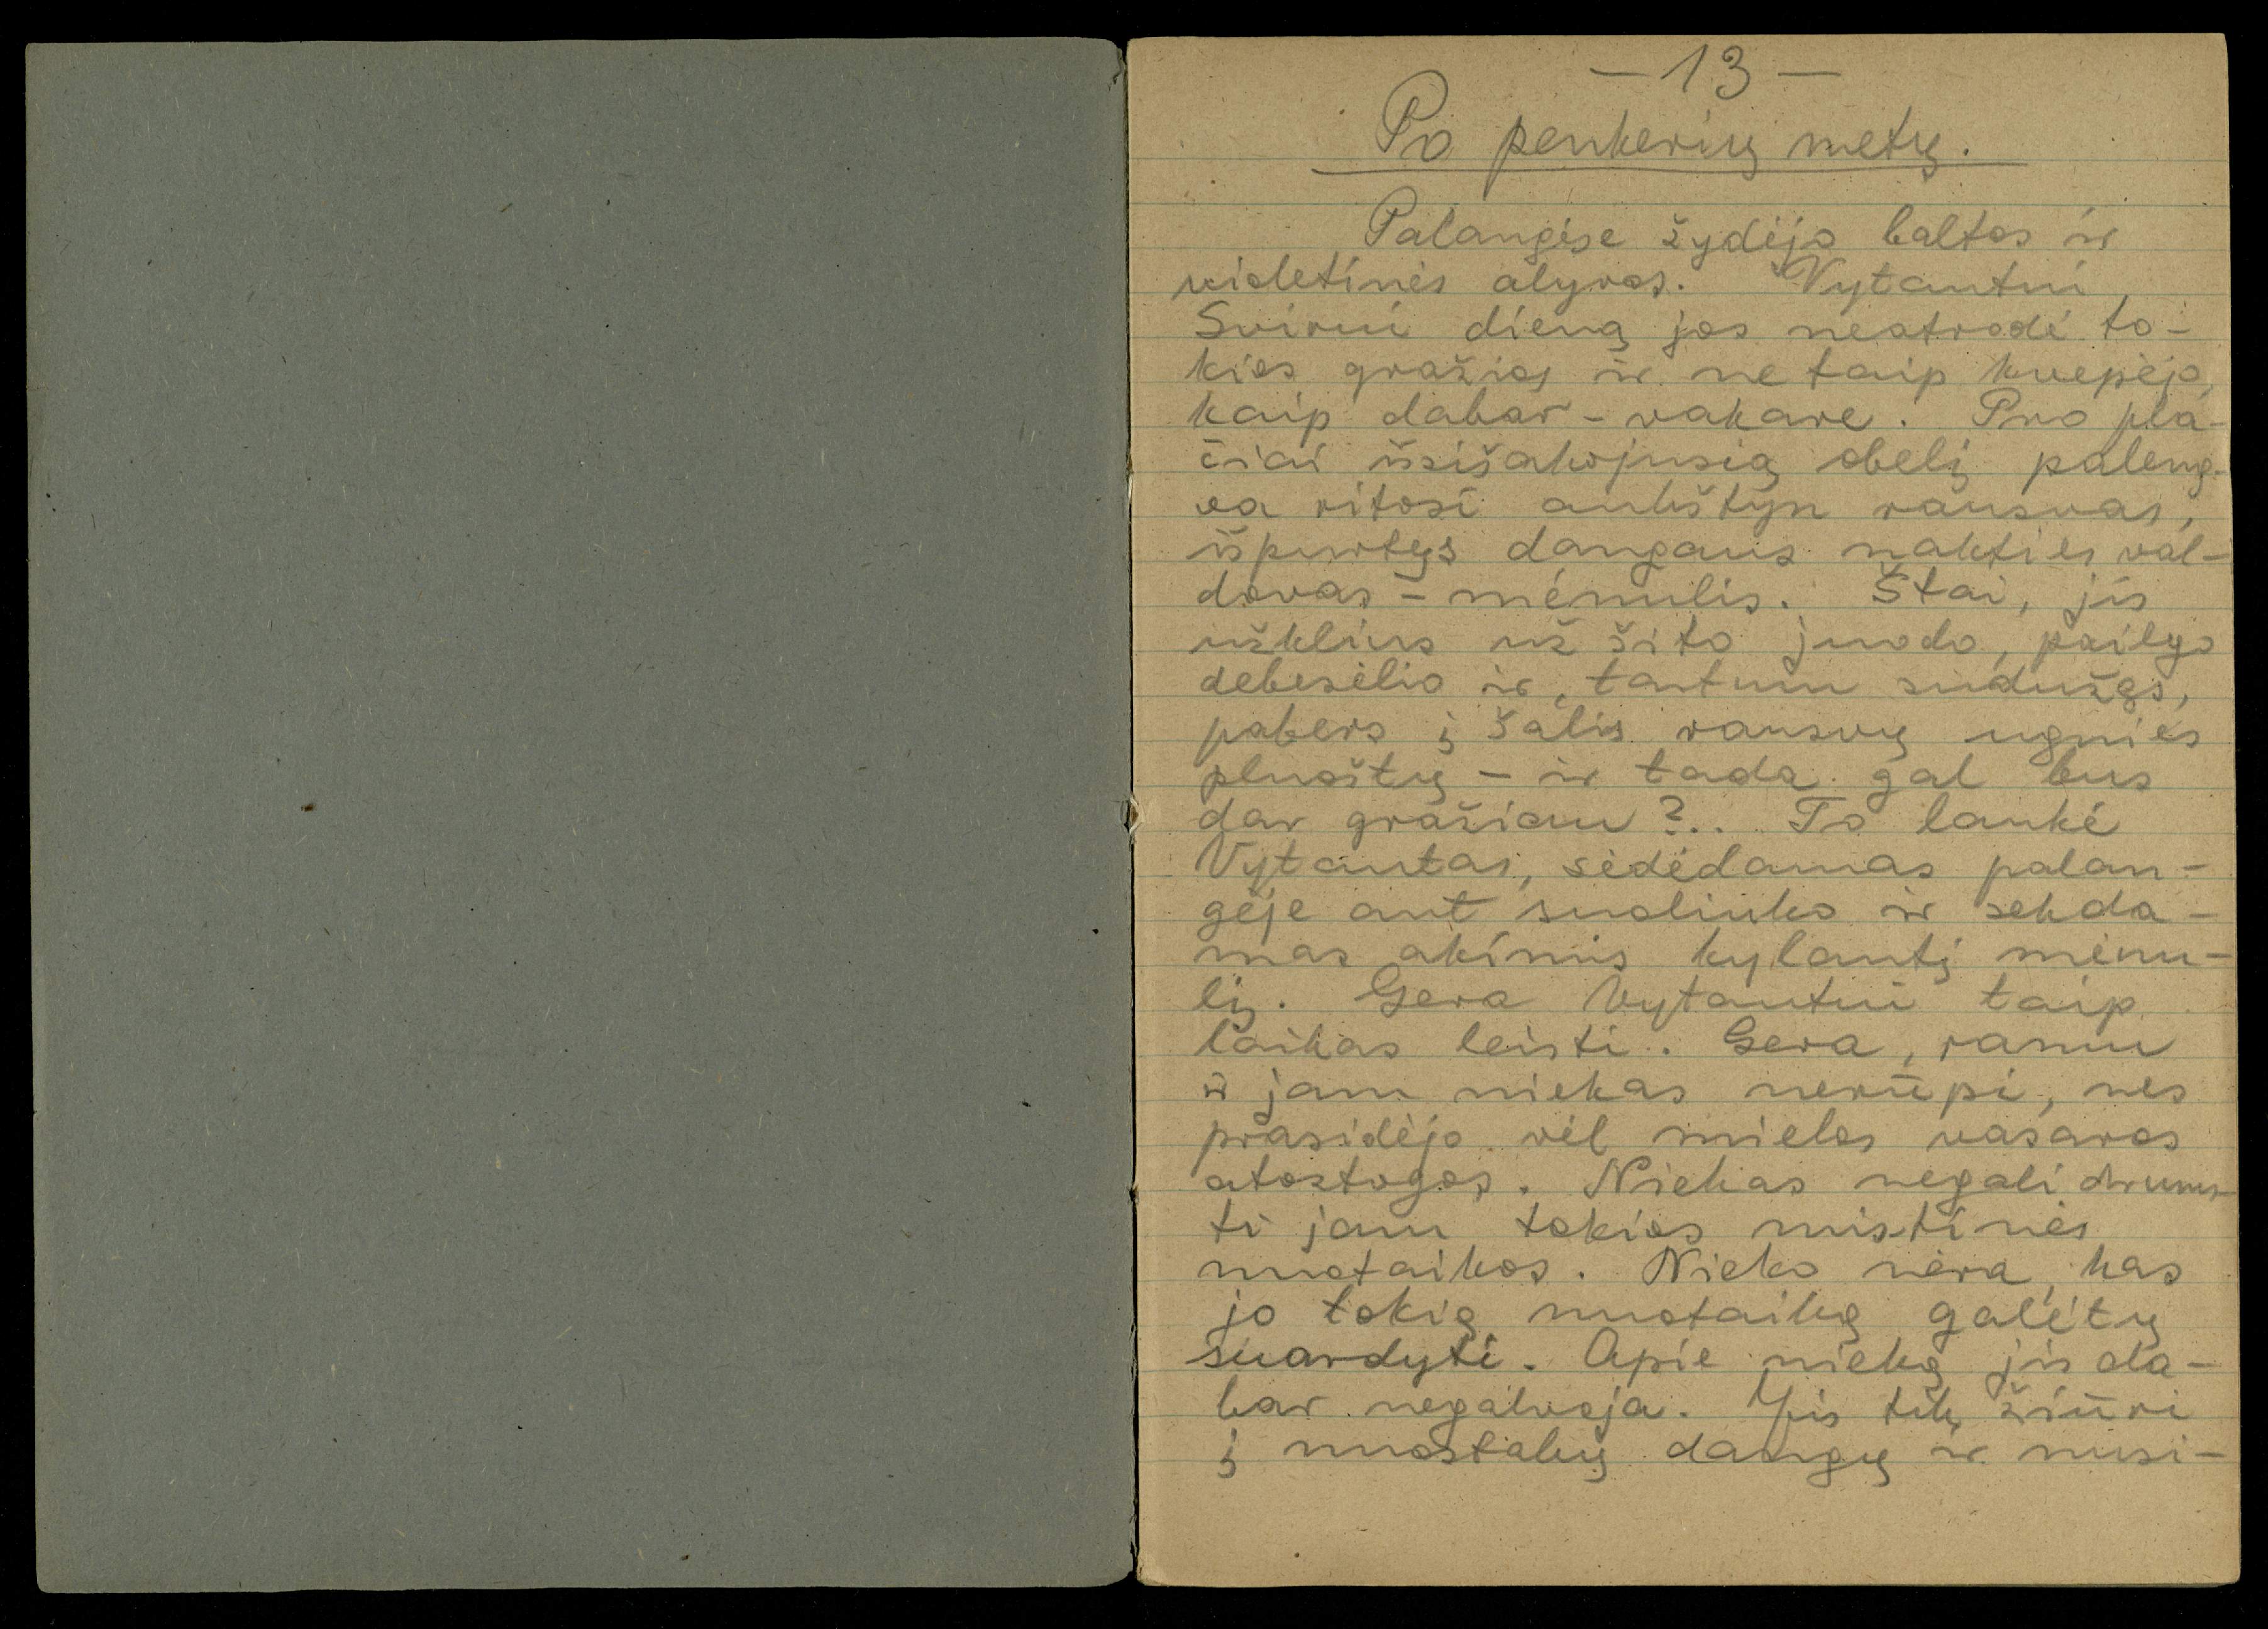 – 13 –
Po penkerių metų.
Palangėse žydėjo baltos ir
violetinės alyvos. Vytautui
Svirui dieną jos neatrodė to-
kios gražios ir ne taip kvepėjo,
kaip dabar - vakare. Pro pla-
čiai išsišakojusią obelį paleng-
va ritosi aukštyn rausvas,
išpurtęs dangaus nakties val-
dovas - mėnulis. Štai, jis
užklius už šito juodo, pailgo
debesėlio ir, tartum sudužęs,
pabers į šalis rausvų ugnies
pluoštų - ir tada gal bus
dar gražiau?.. To laukė
Vytautas, sėdėdamas palan-
gėje ant suoliuko ir sekda-
mas akimis kylantį mėnu-
lį. Gera Vytautui taip
laikas leisti. Gera, ramu
ir jam niekas nerūpi, nes
prasidėjo vėl mielos vasaros
atostogos. Niekas negali drums-
ti jam tokios mistinės
nuotaikos. Nieko nėra, kas
jo tokią nuotaiką galėtų
suardyti. Apie nieką jis da-
bar negalvoja. Jis tik žiūri
į nuostabų dangų ir nusi-